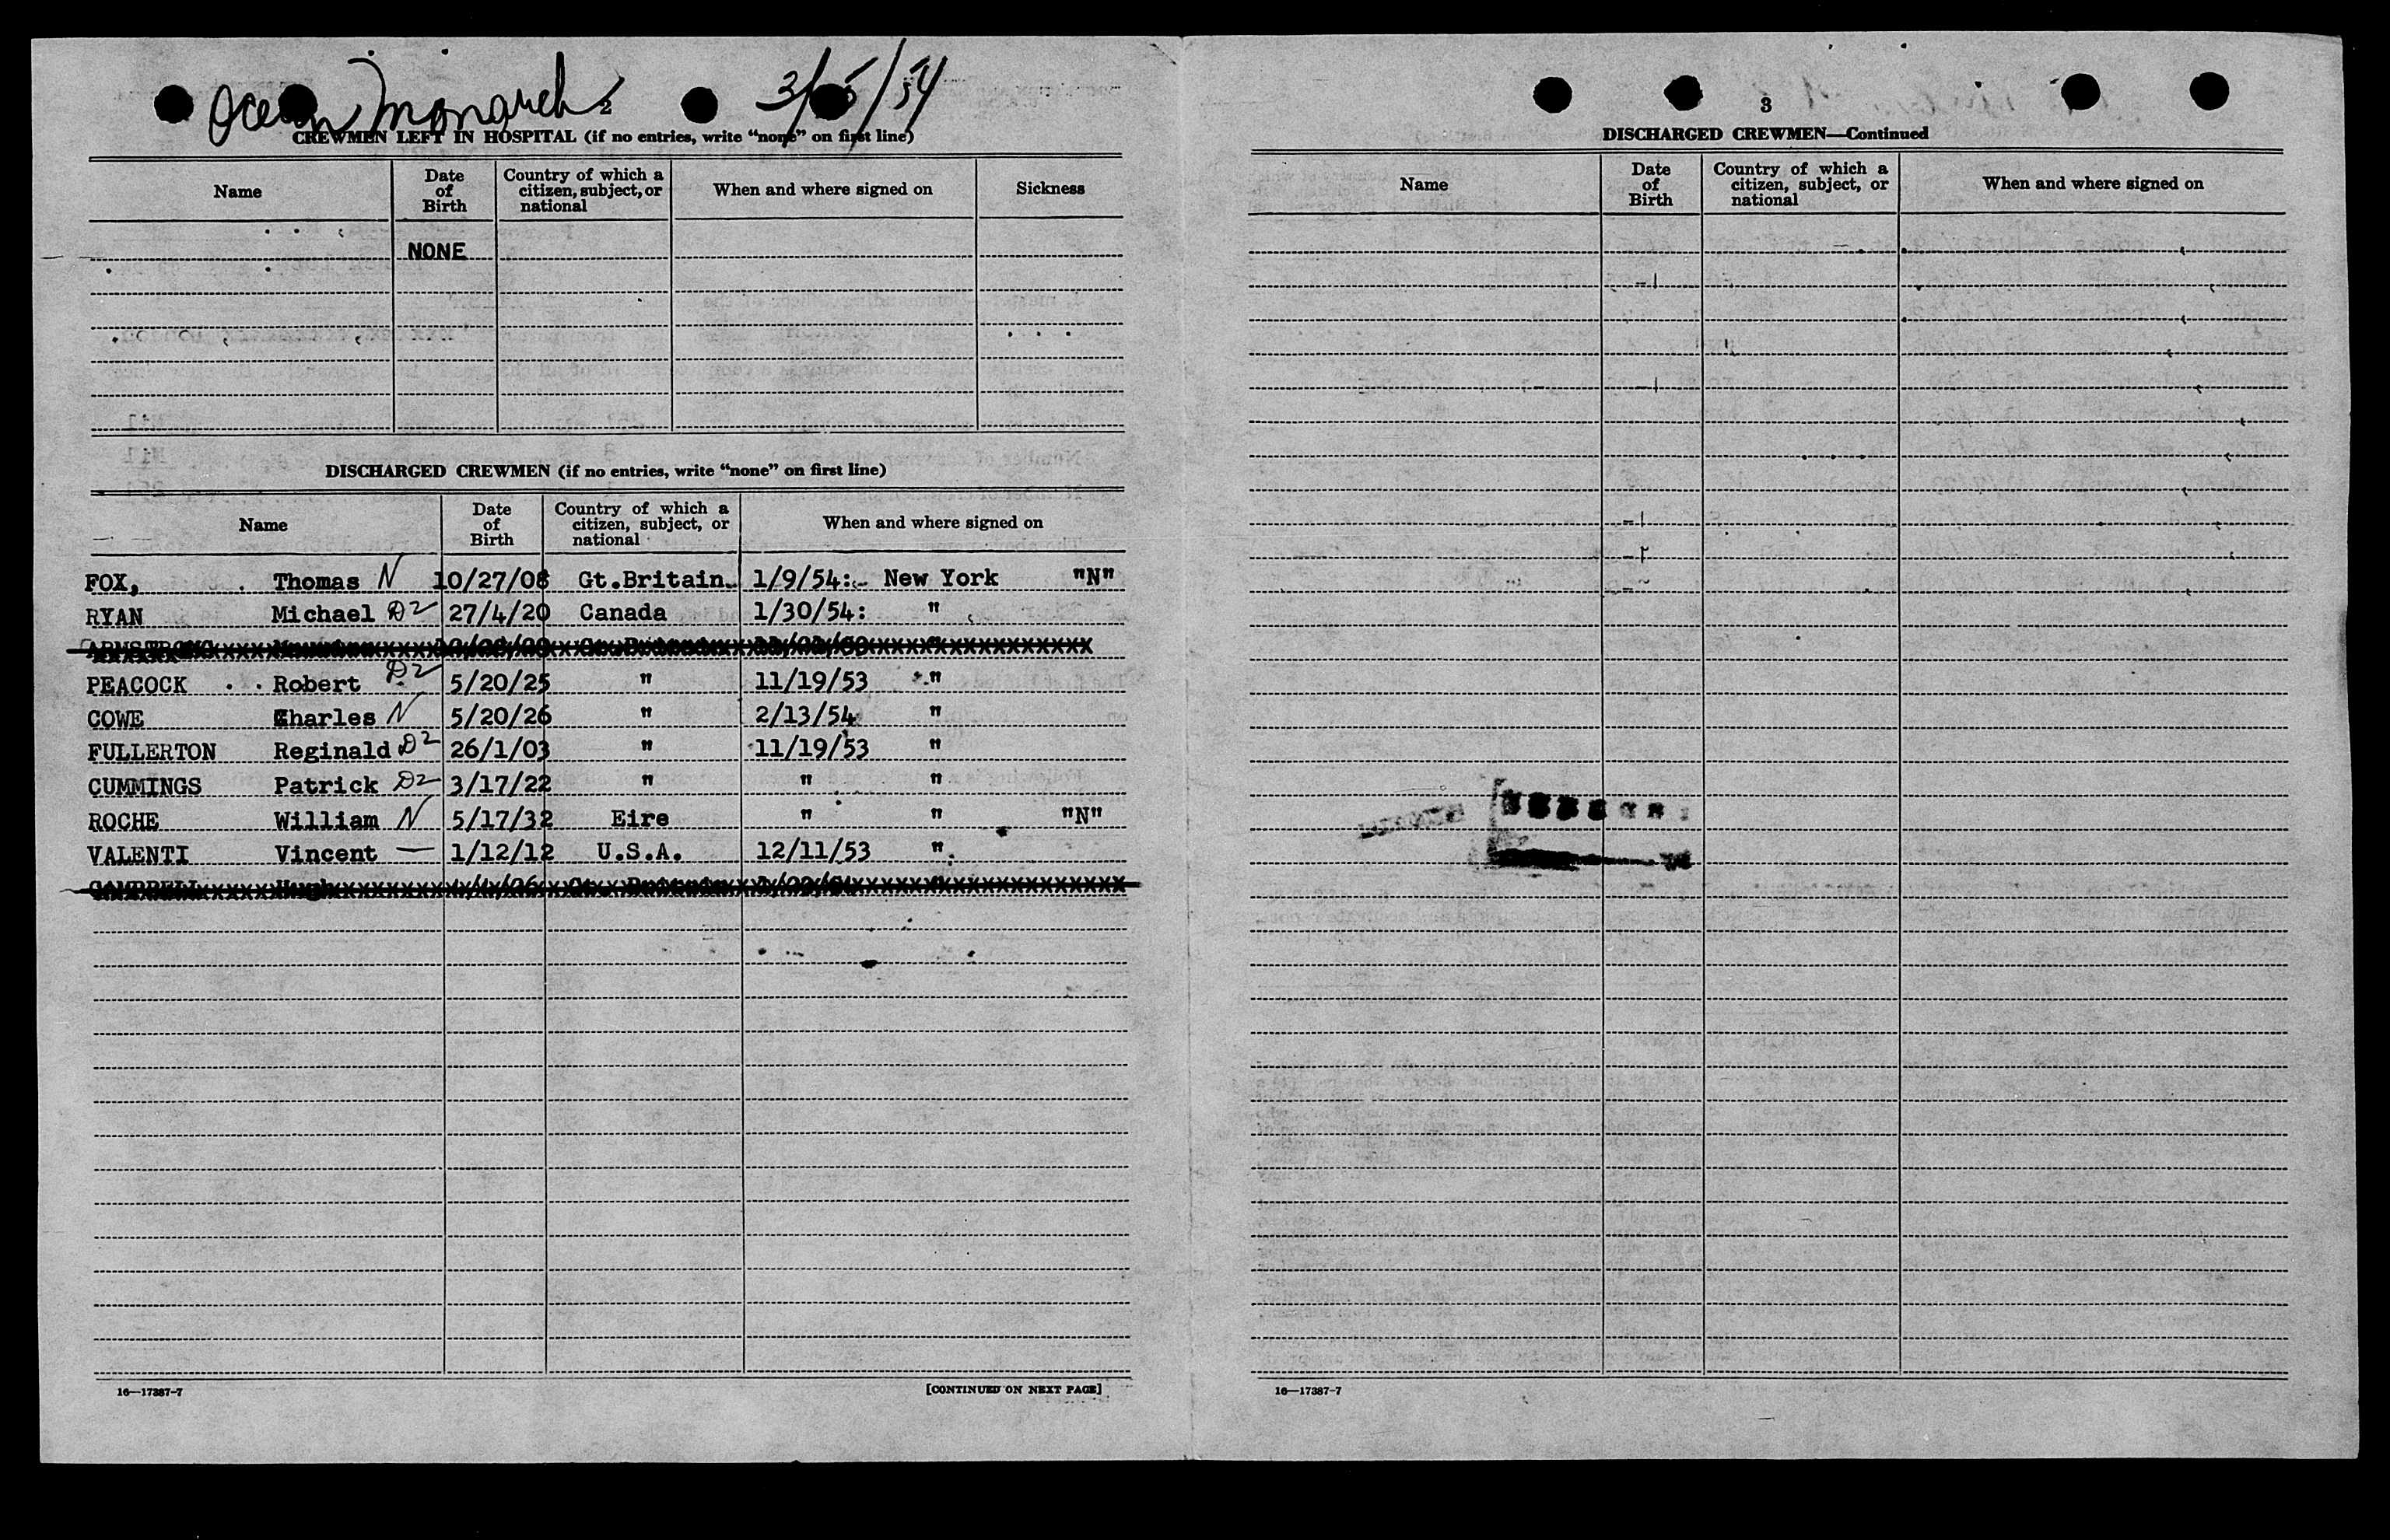 Ocean Monarch 3/5/54
2
CREWMEN LEFT IN HOSPITAL (if no entries, write "none" on first line)
Name Date of Birth Country of which a citizen, subject, or national When and where signed on Sickness
NONE
DISCHARGED CREWMEN (if no entries, write "none" on first line)
Name Date of Birth Country of which a citizen, subject, or national When and where signed on
FOX, Thomas N 10/27/08 Gt.Britain 1/9/54: New York "N"
RYAN Michael D2 27/4/20 Canada 1/30/54: "
ARMSTRONG
PEACOCK Robert D2 5/20/25 " 11/19/53 "
COWE Charles N 5/20/26 " 2/13/54 "
FULLERTON Reginald D2 26/1/03 " 11/19/53 "
CUMMINGS Patrick D2 3/17/22 " " "
ROCHE William N 5/17/32 Eire " " "N"
VALENTI Vincent — 1/12/12 U.S.A. 12/11/53 "
CAMPBELL Hugh Gt. Britain
16—17387-7 [CONTINUED ON NEXT PAGE]
3
DISCHARGED CREWMEN—Continued
Name Date of Birth Country of which a citizen, subject, or national When and where signed on
16—17387-7